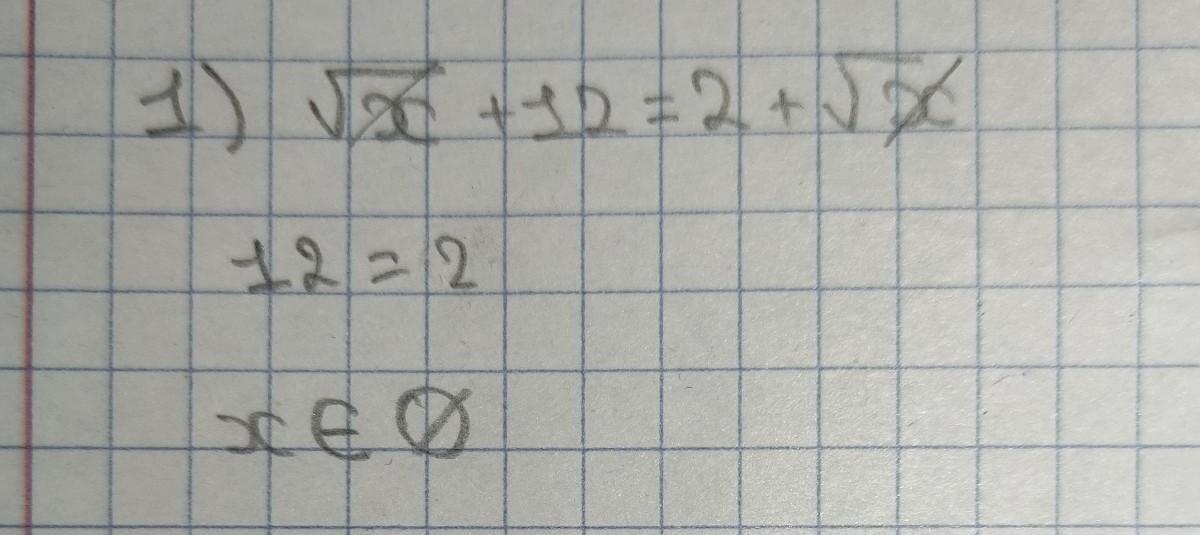 1) √x + 12 = 2 + √x
12 = 2
x ∈ ∅